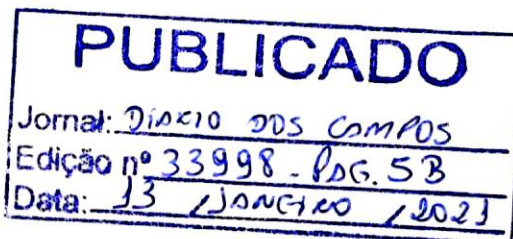 PUBLICADO
Jornal: DIÁRIO DOS CAMPOS
Edição nº 33998 - PÁG. 5B
Data: 13 / JANEIRO / 2021